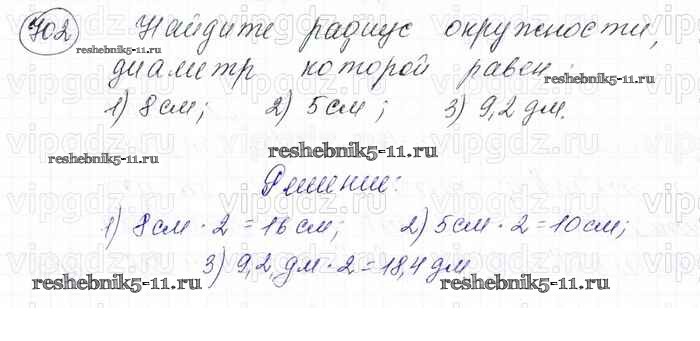 702 Найдите радиус окружности,
reshebnik5-11.ru
диаметр которой равен:
reshebnik5-11.ru
1) 8 см; 2) 5 см; 3) 9,2 дм.
reshebnik5-11.ru reshebnik5-11.ru
Решение:
1) 8 см · 2 = 16 см; 2) 5 см · 2 = 10 см;
3) 9,2 дм · 2 = 18,4 дм
reshebnik5-11.ru reshebnik5-11.ru